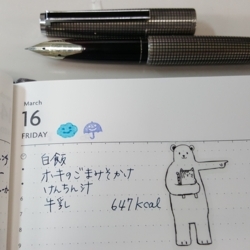 March
16
FRIDAY
白飯
ホキのごまみそかけ
けんちん汁
牛乳 647kcal